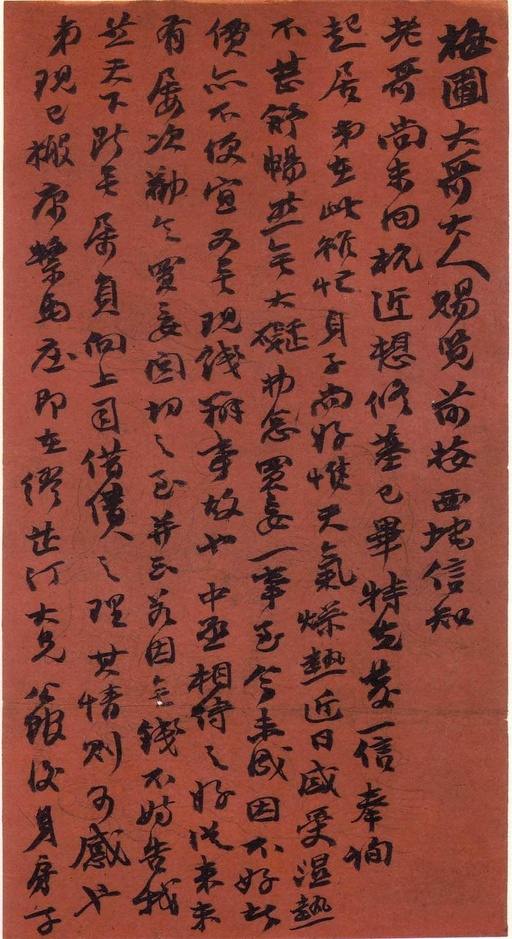 梅圃大哥大人賜覽前接西垞信知
老哥尚未回杭近想修墓已畢特先發一信奉詢
起居弟在此碌忙身子尚好惟天氣燥熱近日感受濕熱
不甚舒暢然無大礙勿念買妾一事至今未成因不好者
價亦不便宜又無現錢辦事故也中丞相待之好從來未
有屢次勸令買妾固切之至并云若因無錢不妨告我
然天下所無屬員向上司借債之理其情則可感也
弟現已搬居馬庄即在繆芷汀大兄公館後身房子